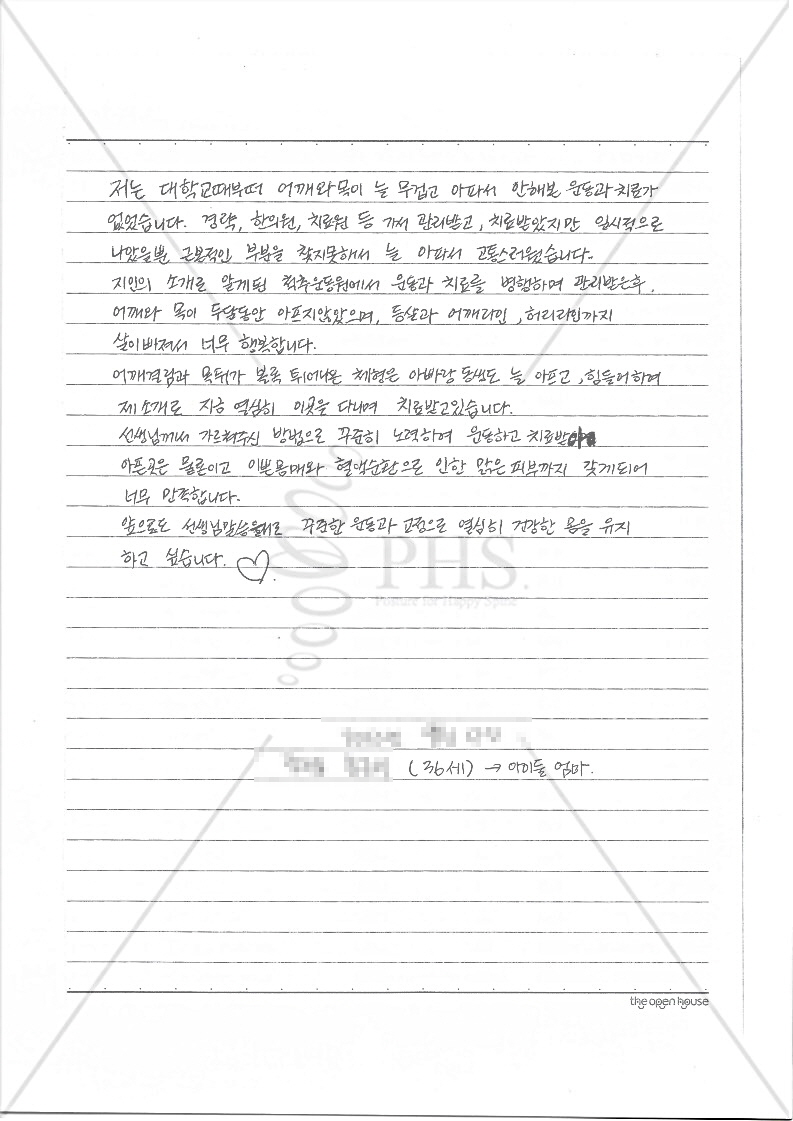 저는 대학교때부터 어깨와 목이 늘 무겁고 아파서 안해본 운동과 치료가
없었습니다. 경락, 한의원, 치료원 등 가서 관리받고, 치료받았지만 일시적으로
나았을뿐 근본적인 부분을 찾지못해서 늘 아파서 고통스러웠습니다.
지인의 소개로 알게된 척추운동원에서 운동과 치료를 병행하며 관리받은후,
어깨와 목이 두달동안 아프지않았으며, 등살과 어깨라인, 허리라인까지
살이빠져서 너무 행복합니다.
어깨결림과 목뒤가 볼록 튀어나온 체형은 아빠랑 동생도 늘 아프고, 힘들어하여
제 소개로 지금 열심히 이곳을 다니며 치료받고있습니다.
선생님께서 가르쳐주신 방법으로 꾸준히 노력하여 운동하고 치료받아
아픈곳은 물론이고 이쁜몸매와 혈액순환으로 인한 맑은 피부까지 갖게되어
너무 만족합니다.
앞으로도 선생님말씀대로 꾸준한 운동과 교정으로 열심히 건강한 몸을 유지
하고 싶습니다. ♡.
PHS.
Posture for Happy Spine
(36세) → 아이들 엄마.
the open house